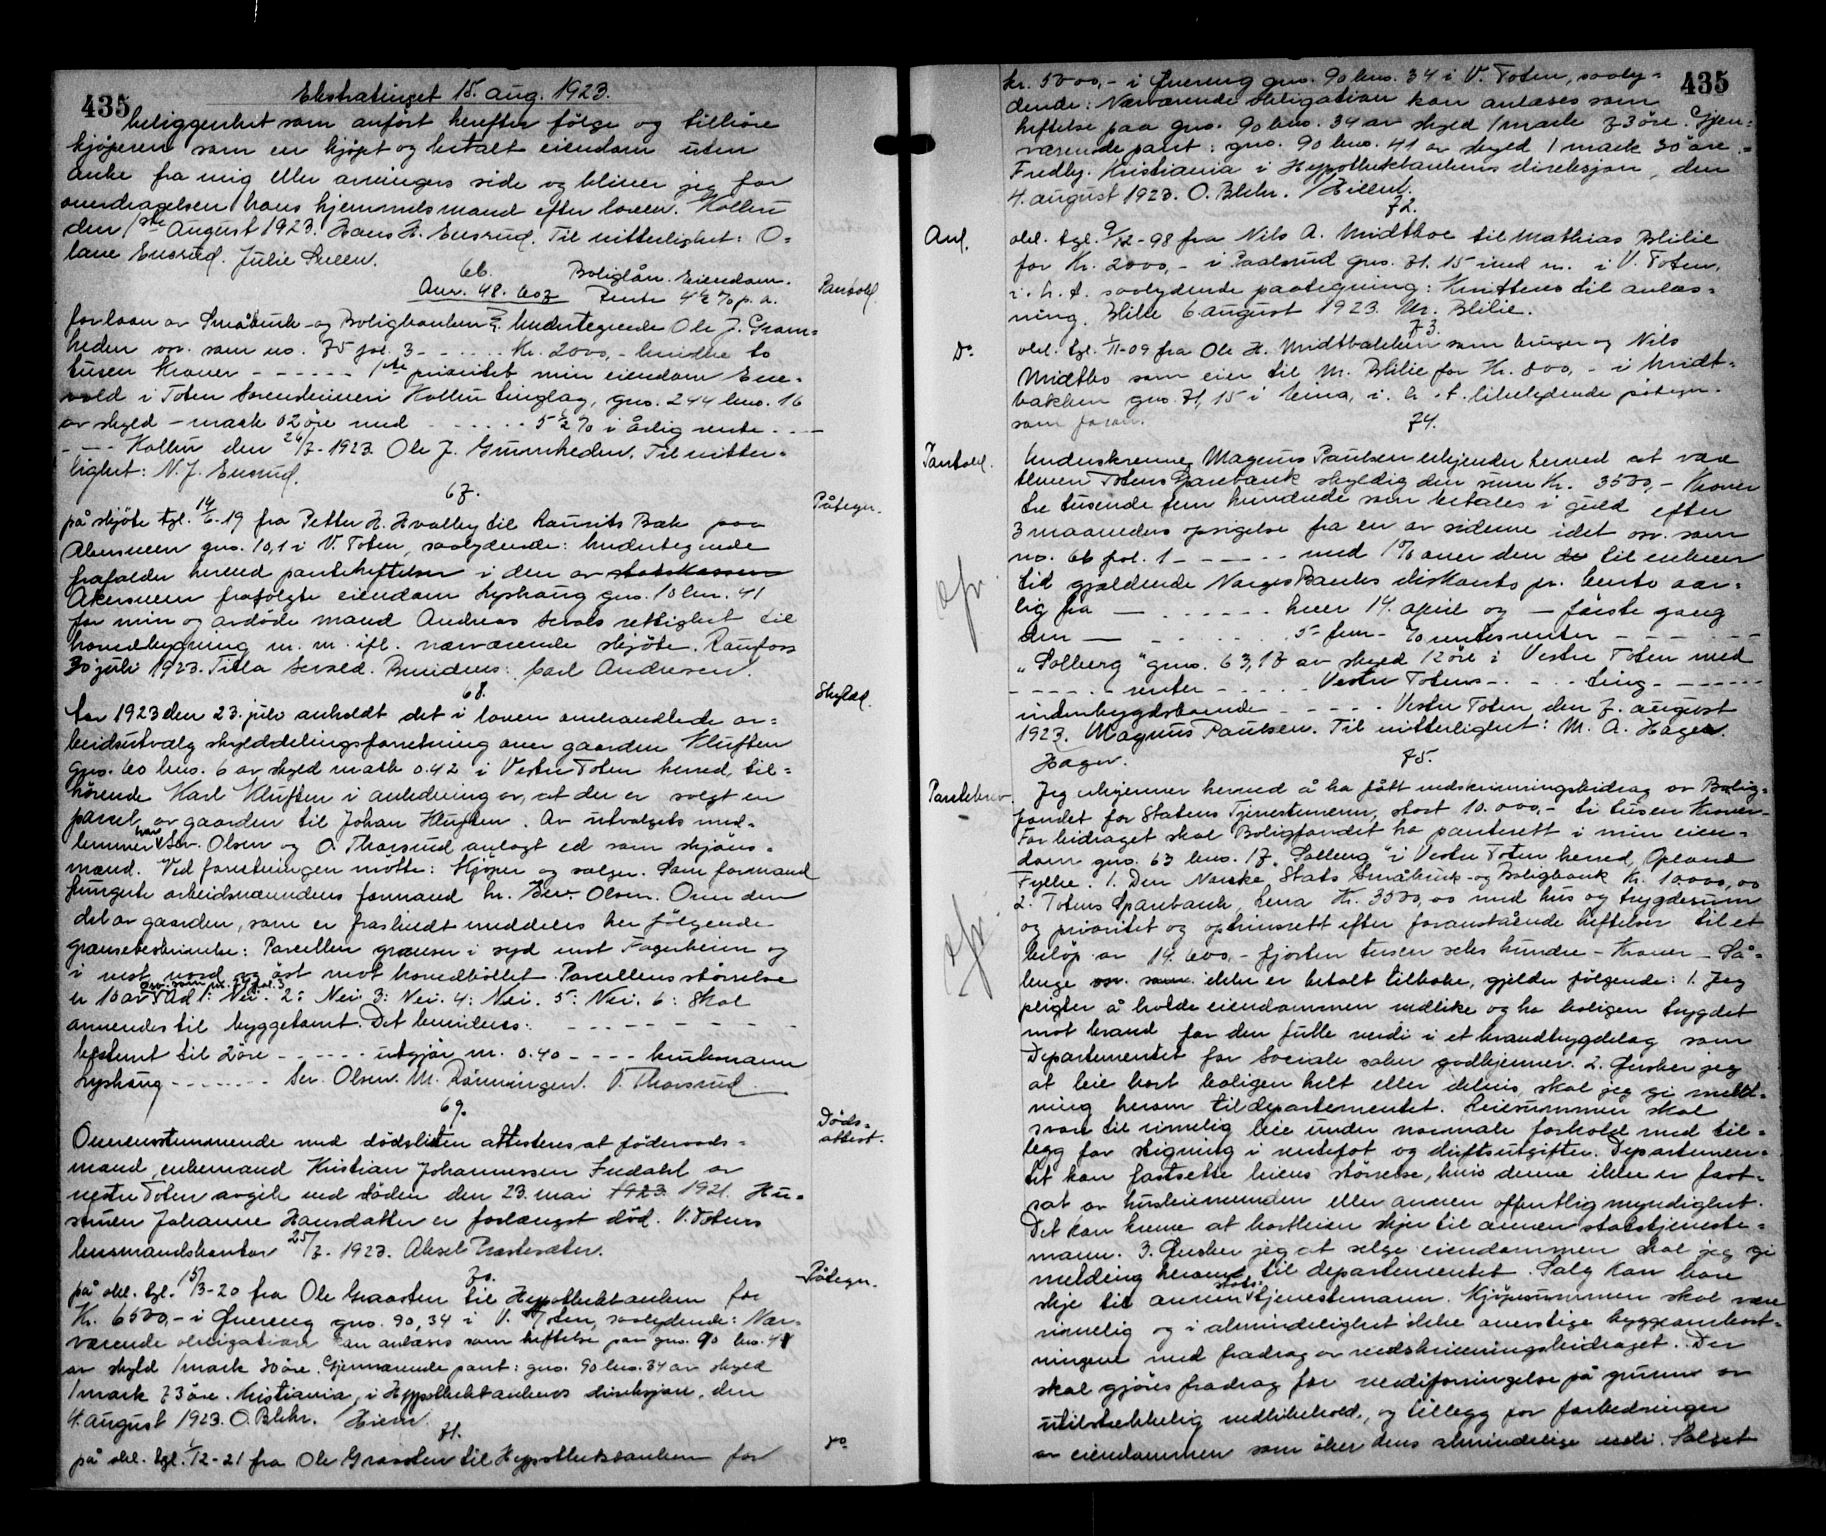 435
Ekstratinget 15. aug. 1923.
beliggenhet som anført herefter følge og tilhøre
kjøperen som en kjøpt og betalt eiendom uten
anke fra mig eller arvingers side og bliver jeg for
overdragelsen hans hjemmelsmand efter loven. Kolbu
den 1ste August 1923. Hans H. Ensrud. Til vitterlighet: O-
lave Ensrud. Julie Sveen.
66.
Boliglån. Eiendom.
Anv. 48. 607 Rente 4½ % p. a.
Pantobl.
for laan av Småbruk- og Boligbanken Undertegnede Ole J. Grøn-
heden osv. som no. 75 fol. 3 - - - - - Kr. 2000,- bindke to
tusen Kroner - - - - - 1ste prioritet min eiendom Ene-
vold i Toten Sorenskriveri Kolbu tinglag, gno. 244 bno. 16
av skyld - mark 02 øre med - - - - - 5½ % i årlig rente - - -
- - - Kolbu den 26/7-1923. Ole J. Grønnheden. Til vitter-
lighet: N. J. Ensrud.
67.
Påtegn.
på skjøte tgl. 14/6-19 fra Petter H. Hvalby til Laurits Bæk paa
gno. 10,1 i V. Toten, saalydende: Undertegnede
frafalder herved panteheftelser i den av statskassen
frasolgte eiendom Lyshaug gno. 10 bno. 41
for min og avdøde mand Andreas rettighet til
hovedbygning m. m. ifl. nærværende skjøte. Raufoss
30 juli 1923. Bevidnes: Carl Andresen.
68.
Skyldd.
Aar 1923 den 23. juli avholdt det i loven omhandlede ar-
beidsutvalg skylddelingsforretning over gaarden Kluften
gno. 60 bno. 6 av skyld mark 0.42 i Vestre Toten herred, til-
hørende Karl Kluften i anledning av, at der er solgt en
parcel av gaarden til Johan Kluften. Av utvalgets med-
lemmer har Sev. Olsen og O. Thorsrud avlagt ed som skjøns-
mænd. Ved forretningen møtte: Kjøper og sælger. Som formand
fungerte arbeidsmændenes formand hr. Sev. Olsen. Om den
del av gaarden, som er fraskildt meddeles her følgende
grænsebeskrivelse: Parcellen grænser i syd mot Fagerheim og
i vest, nord og øst mot hovedbøllet. Parcellens størrelse
osv. som nr. 59 fol. 3
er 10 ar. Ad 1: Nei. 2: Nei 3: Nei. 4: Nei. 5: Nei. 6: Skal
anvendes til byggetomt. Det bevidnes: - - - - - - -
bestemt til 2 øre - - - - - utgjør m. 0.40 - - - - bruksnavn
Lyshaug - - - - - - - Sev. Olsen. M. Rønningen. O. Thorsrud.
69.
Døds-
attest.
Overensstemmende med dødslisten attesteres at føderaads-
mand, enkemand Kristian Johannessen Indahl av
vestre Toten avgik ved døden den 23. mai 1923 1921. Hu-
struen Johanne Hansdatter er forlængst død. V. Totens
lensmandskontor 25/7-1923. Aksel Præstesæter.
70.
Påtegn.
på obl. tgl. 15/3-20 fra Ole Graasten til Hypothekbanken for
Kr. 6500,- i Øvereng gno. 90,34 i V. Toten, saalydende: Nær-
værende obligation kan avlæses som heftelse paa gno. 90 bno. 41
av skyld 1 mark 30 øre. Gjenværende pant: gno. 90 bno. 34 av skyld
1 mark 73 øre. Kristiania, i Hypothekbankens direksjon, den
4. august 1923. O. Blehr. /Eiem.
71.
do
på obl. tgl. 1/12-21 fra Ole Graasten til Hypothekbanken for
435
kr. 5000,- i Øvereng gno. 90 bno. 34 i V. Toten, saaly-
dende: Nærværende obligation kan avlæses som
heftelse paa gno. 90 bno. 34 av skyld 1 mark 73 øre. Gjen-
værende pant: gno. 90 bno. 41 av skyld 1 mark 30 øre -
Fredby. Kristiania i Hypothekbankens direksjon, den
4. august 1923. O. Blehr. /Eiem.
72.
Avl.
obl. tgl. 9/12-98 fra Nils A. Midtboe til Mathias Blilie
for Kr. 2000,- i Paalsrud gno. 71. 15 med m. i V. Toten,
i. h. t. saalydende paategning: Kvitteres til avlæs-
ning. Blilie 6 august 1923. M. Blilie.
73.
Do
obl. tgl. 1/11-09 fra Ole H. Midtbakken som bruger og Nils
Midtbo som eier til M. Blilie for Kr. 800,- i Midt-
bakken gno. 71, 15 i Eina, i. h. t. likelydende påtegn.
som foran.
74.
Pantobl.
Underskrevne Magnus Paulsen erkjender herved at være
bleven Totens Sparebank skyldig den sum Kr. 3500,- Kroner
tre tusende fem hundrede som betales i guld efter
3 maaneders opsigelse fra en av siderne idet osv. som
no. 66 fol. 1 - - - - - med 1 % over den de til enhver
tid gjældende Norges Banks diskonto pr. rente aar-
lig fra - - - - - - - hver 14. april og - første gang
den - - - - - - - 5 - fem - % rentesrenter - - - - -
"Solberg" gno. 63,17 av skyld 12 øre i Vestre Toten med
- - - - - renter - - - - - Vestre Totens - - - - ting - - - - - -
indenbygdsboende - - - - - Vestre Toten den 7. august
1923. Magnus Paulsen. Til vitterlighet: M. A. Hager.
Hager.
75.
Pantebrev.
Jeg erkjenner herved å ha fått nedskrivningsbidrag av Bolig-
fondet for Statens Tjenestemenn, stort 10.000,- ti tusen Kroner-
For bidraget skal Boligfondet ha panterett i min eien-
dom gno. 63 bno. 17 "Solberg" i Vestre Toten herred, Opland
Fylke. 1. Den Norske Stats Småbruk- og Boligbank Kr. 10.000,00
2. Totens Sparebank, Lena Kr. 3500,00 med hus og trygdesum
og prioritet og oprinsrett efter foranstående heftelser til et
beløp av 14.600,- fjorten tusen seks hundre - Kroner - Så-
lenge osv. som ikke er betalt tilbake, gjelder følgende: 1. Jeg
plikter å holde eiendommen vedlike og ha boligen trygdet
mot brand for den fulle verdi i et brandtrygdelag som
Departementet for Sociale saker godkjenner. 2. Ønsker jeg
at leie bort boligen helt eller delvis, skal jeg gi meld-
ning herom til departementet. Leiesummen skal
svare til rimelig leie under normale forhold med til-
legg for stigning i rentefot og driftsutgifter. Departemen-
tet kan fastsette leiens størrelse, hvis denne ikke er fast-
sat av husleienevnden eller annen offentlig myndighet.
Det kan kreve at bortleien skjer til annen statstjeneste-
mann. 3. Ønsker jeg at selge eiendommen skal jeg gi
melding herom til departementet. Salg kan bare
skje til annen stats-tjenestemann. Kjøpesummen skal være
rimelig og i almindelighet ikke overstige byggeomkost-
ningene med fradrag av nedskrivningsbidraget. Der
skal gjøres fradrag for verdiforringelse på grunn av
utilstrekkelig vedlikehold, og tillegg for forbedringer
av eiendommen som øker dens almindelige verdi. Salget